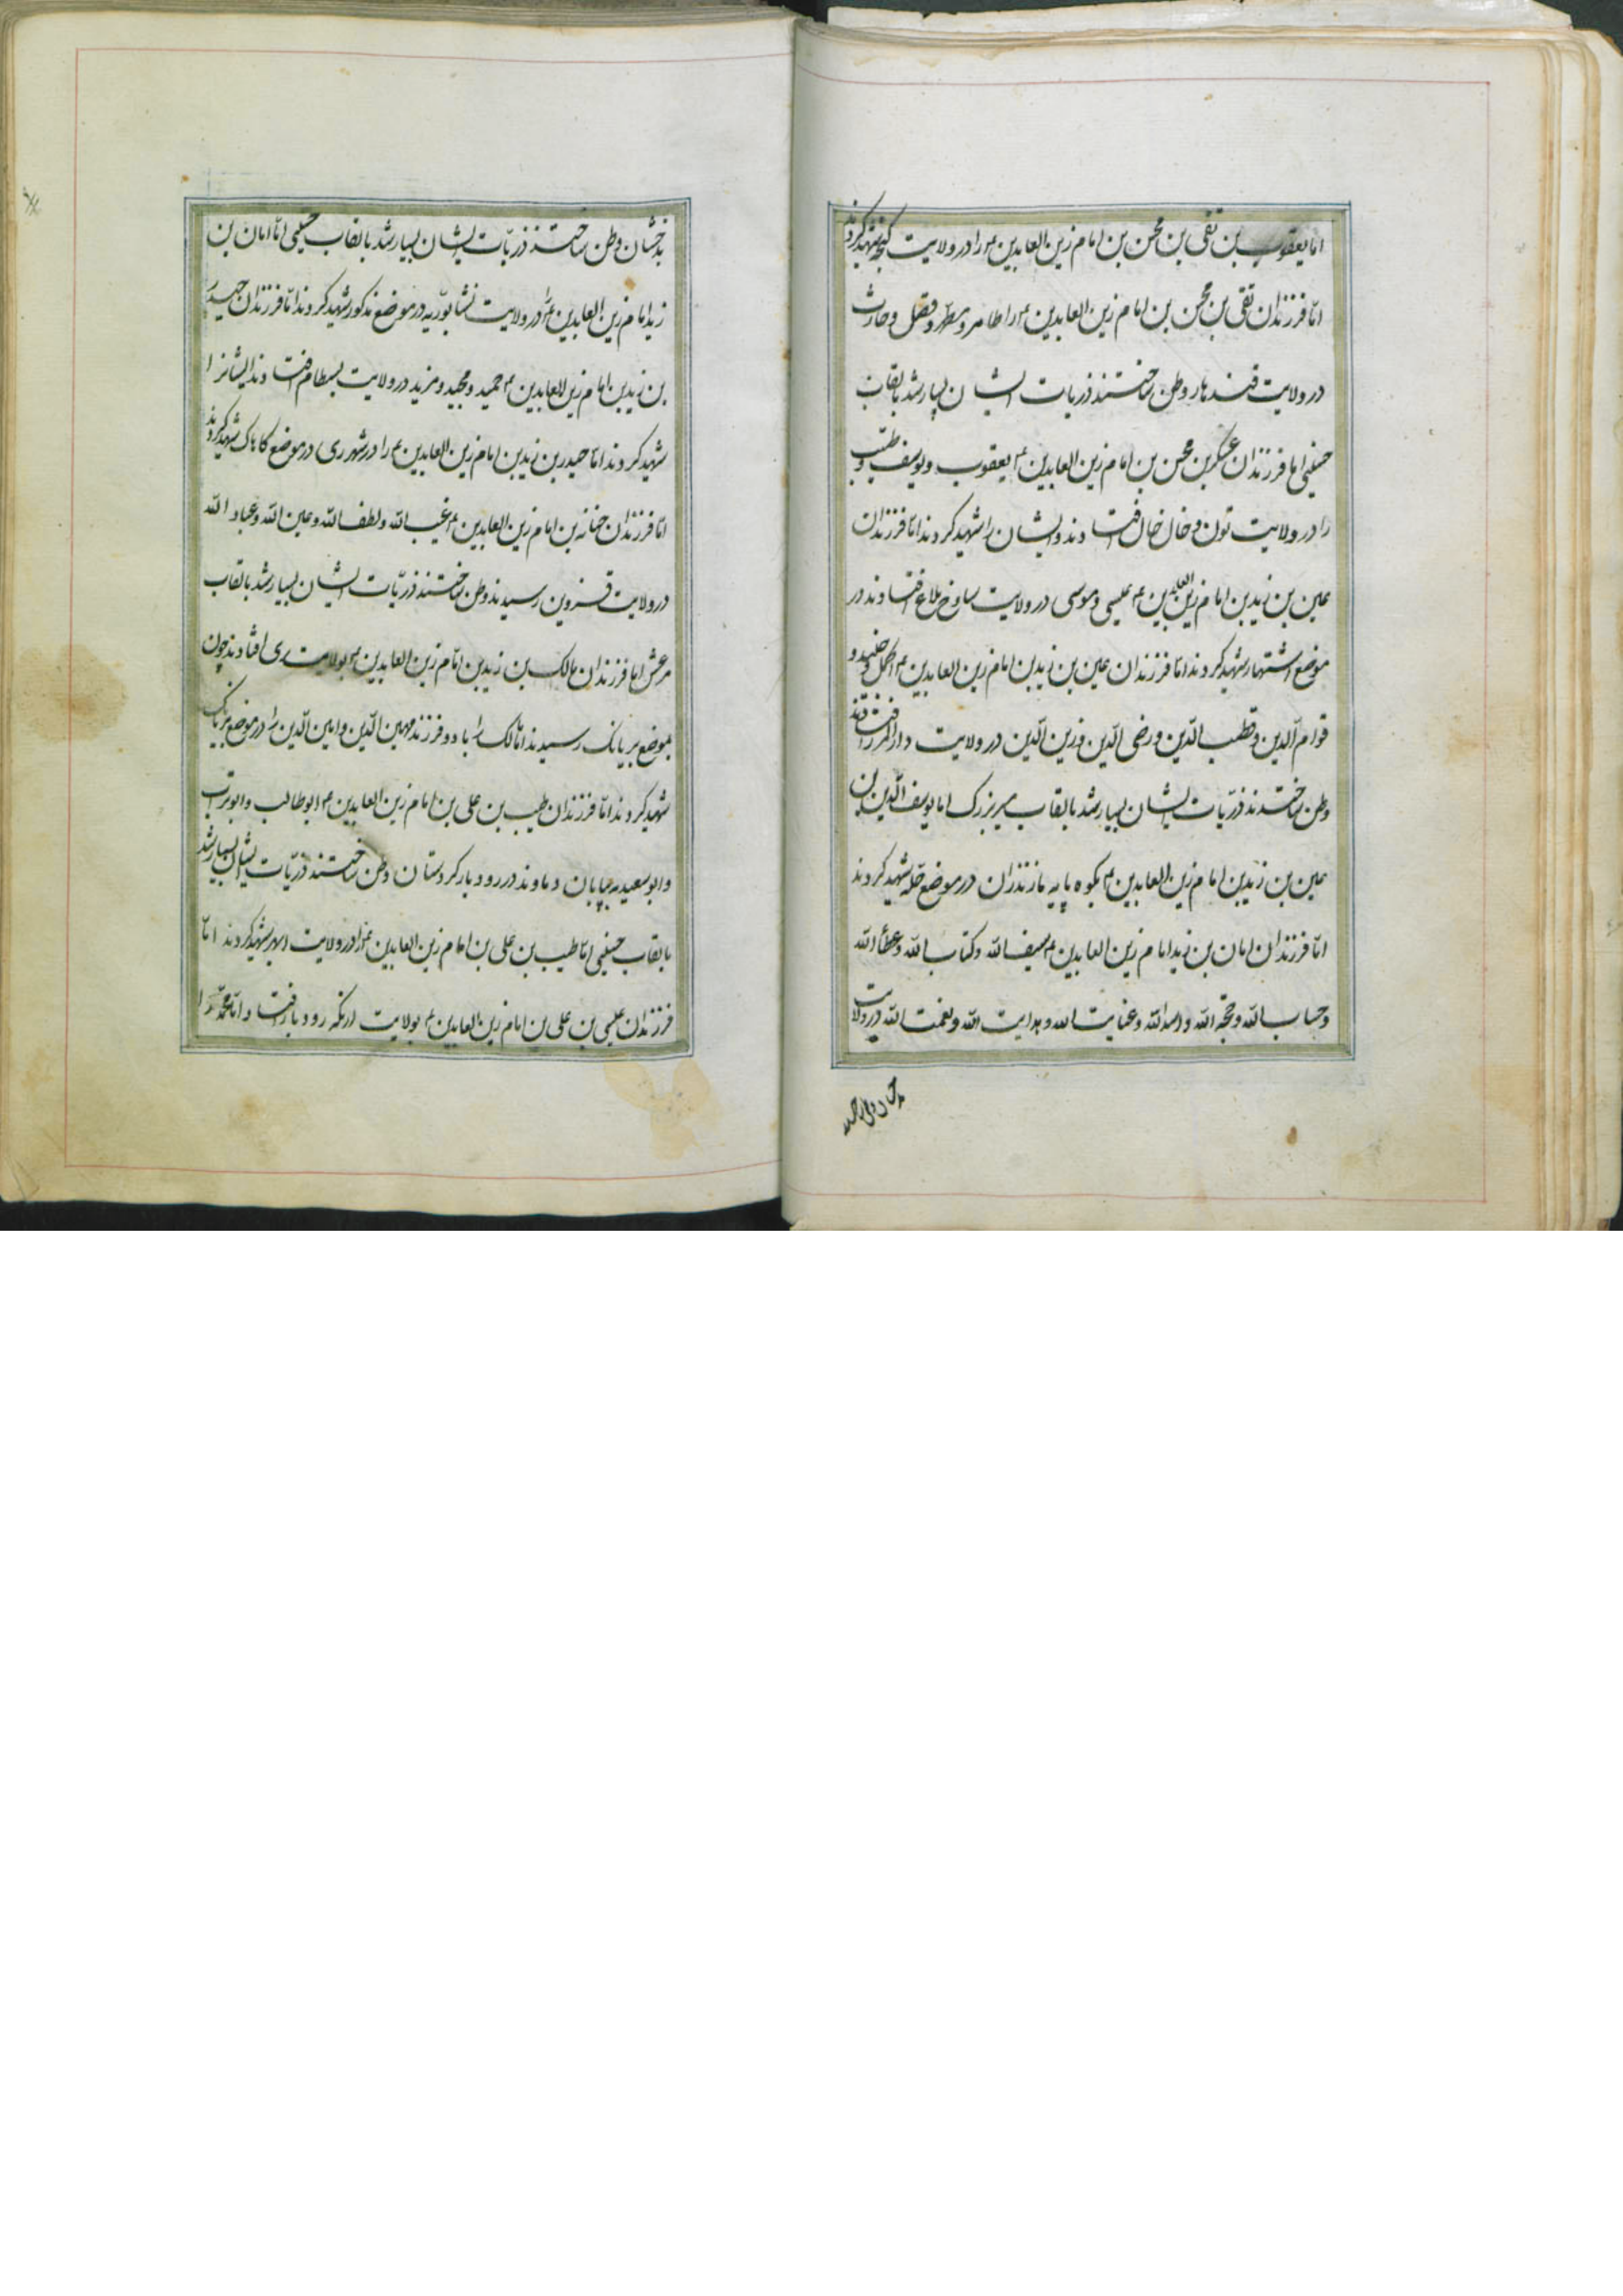 اما یعقوب بن تقی بن محسن بن امام زین العابدین ع را در ولایت کنجه شهید کردند
امّا فرزندان تقی بن محسن بن امام زین العابدین ع را طاهر و مطهّر و فضل و حارث
در ولایت قندهار وطن ساختند ذریات ایشان بسیار شد بالقاب
حسینی اما فرزندان عسکر بن محسن بن امام زین العابدین ع یعقوب و یوسف و طیّب
را در ولایت تون و خال خال افتادند و ایشان را شهید کردند امّا فرزندان
عین بن زید بن امام زین العابدین ع عیسی و موسی در ولایت افتادند در
موضع اشتهار شهید کردند امّا فرزندان عین بن زید بن امام زین العابدین ع اکمل و
قوام الدین و قطب الدین و رضی الدین و زین الدین در ولایت دارالمرز افتادند
وطن ساختند ذریّات ایشان بسیار شد بالقاب میر بزرک اما یوسف الدّین بن
عین بن زید بن امام زین العابدین ع بکوه پایه مازندران در موضع شهید کردند
امّا فرزندان امان بن زید امام زین العابدین ع سیف الله و کتاب الله و عطاء الله
و حساب الله و حجة الله و اسد الله و عنایت الله و هدایت الله و نعمت الله در ولایت
بدخشان وطن ساختند ذریّات ایشان بسیار شد بالقاب حسینی امّا امان بن
زید امام زین العابدین ع را در ولایت نشابوریه در موضع مذکور شهید کردند امّا فرزندان حیدر
بن زید بن امام زین العابدین ع حمید و مجید و مزید در ولایت بسطام افتادند ایشانرا
شهید کردند امّا حیدر بن زید بن امام زین العابدین ع را در شهر ری در موضع کاهک شهید کردند
امّا فرزندان بن امام زین العابدین ع غیب الله و لطف الله و عین الله و عباد الله
در ولایت قزوین رسیدند وطن ساختند ذریّات ایشان بسیار شد بالقاب
مرعش اما فرزندان مالک بن زید بن امام زین العابدین ع بولایت ری افتادند چون
بموضع بریانک رسیدند امّا مالک را با دو فرزند مهین الدّین و امین الدّین را در موضع بریانک
شهید کردند امّا فرزندان طیب بن علی بن امام زین العابدین ع ابوطالب و ابوتراب
و ابوسعید به بیابان دماوند در رودبار کردستان وطن ساختند ذریّات ایشان بسیار شد
بالقاب حسینی امّا طیب بن علی بن امام زین العابدین ع را در ولایت ابهر شهید کردند امّا
فرزندان عیسی بن علی بن امام زین العابدین ع بولایت رودبار افتاد و امّا محمّد را